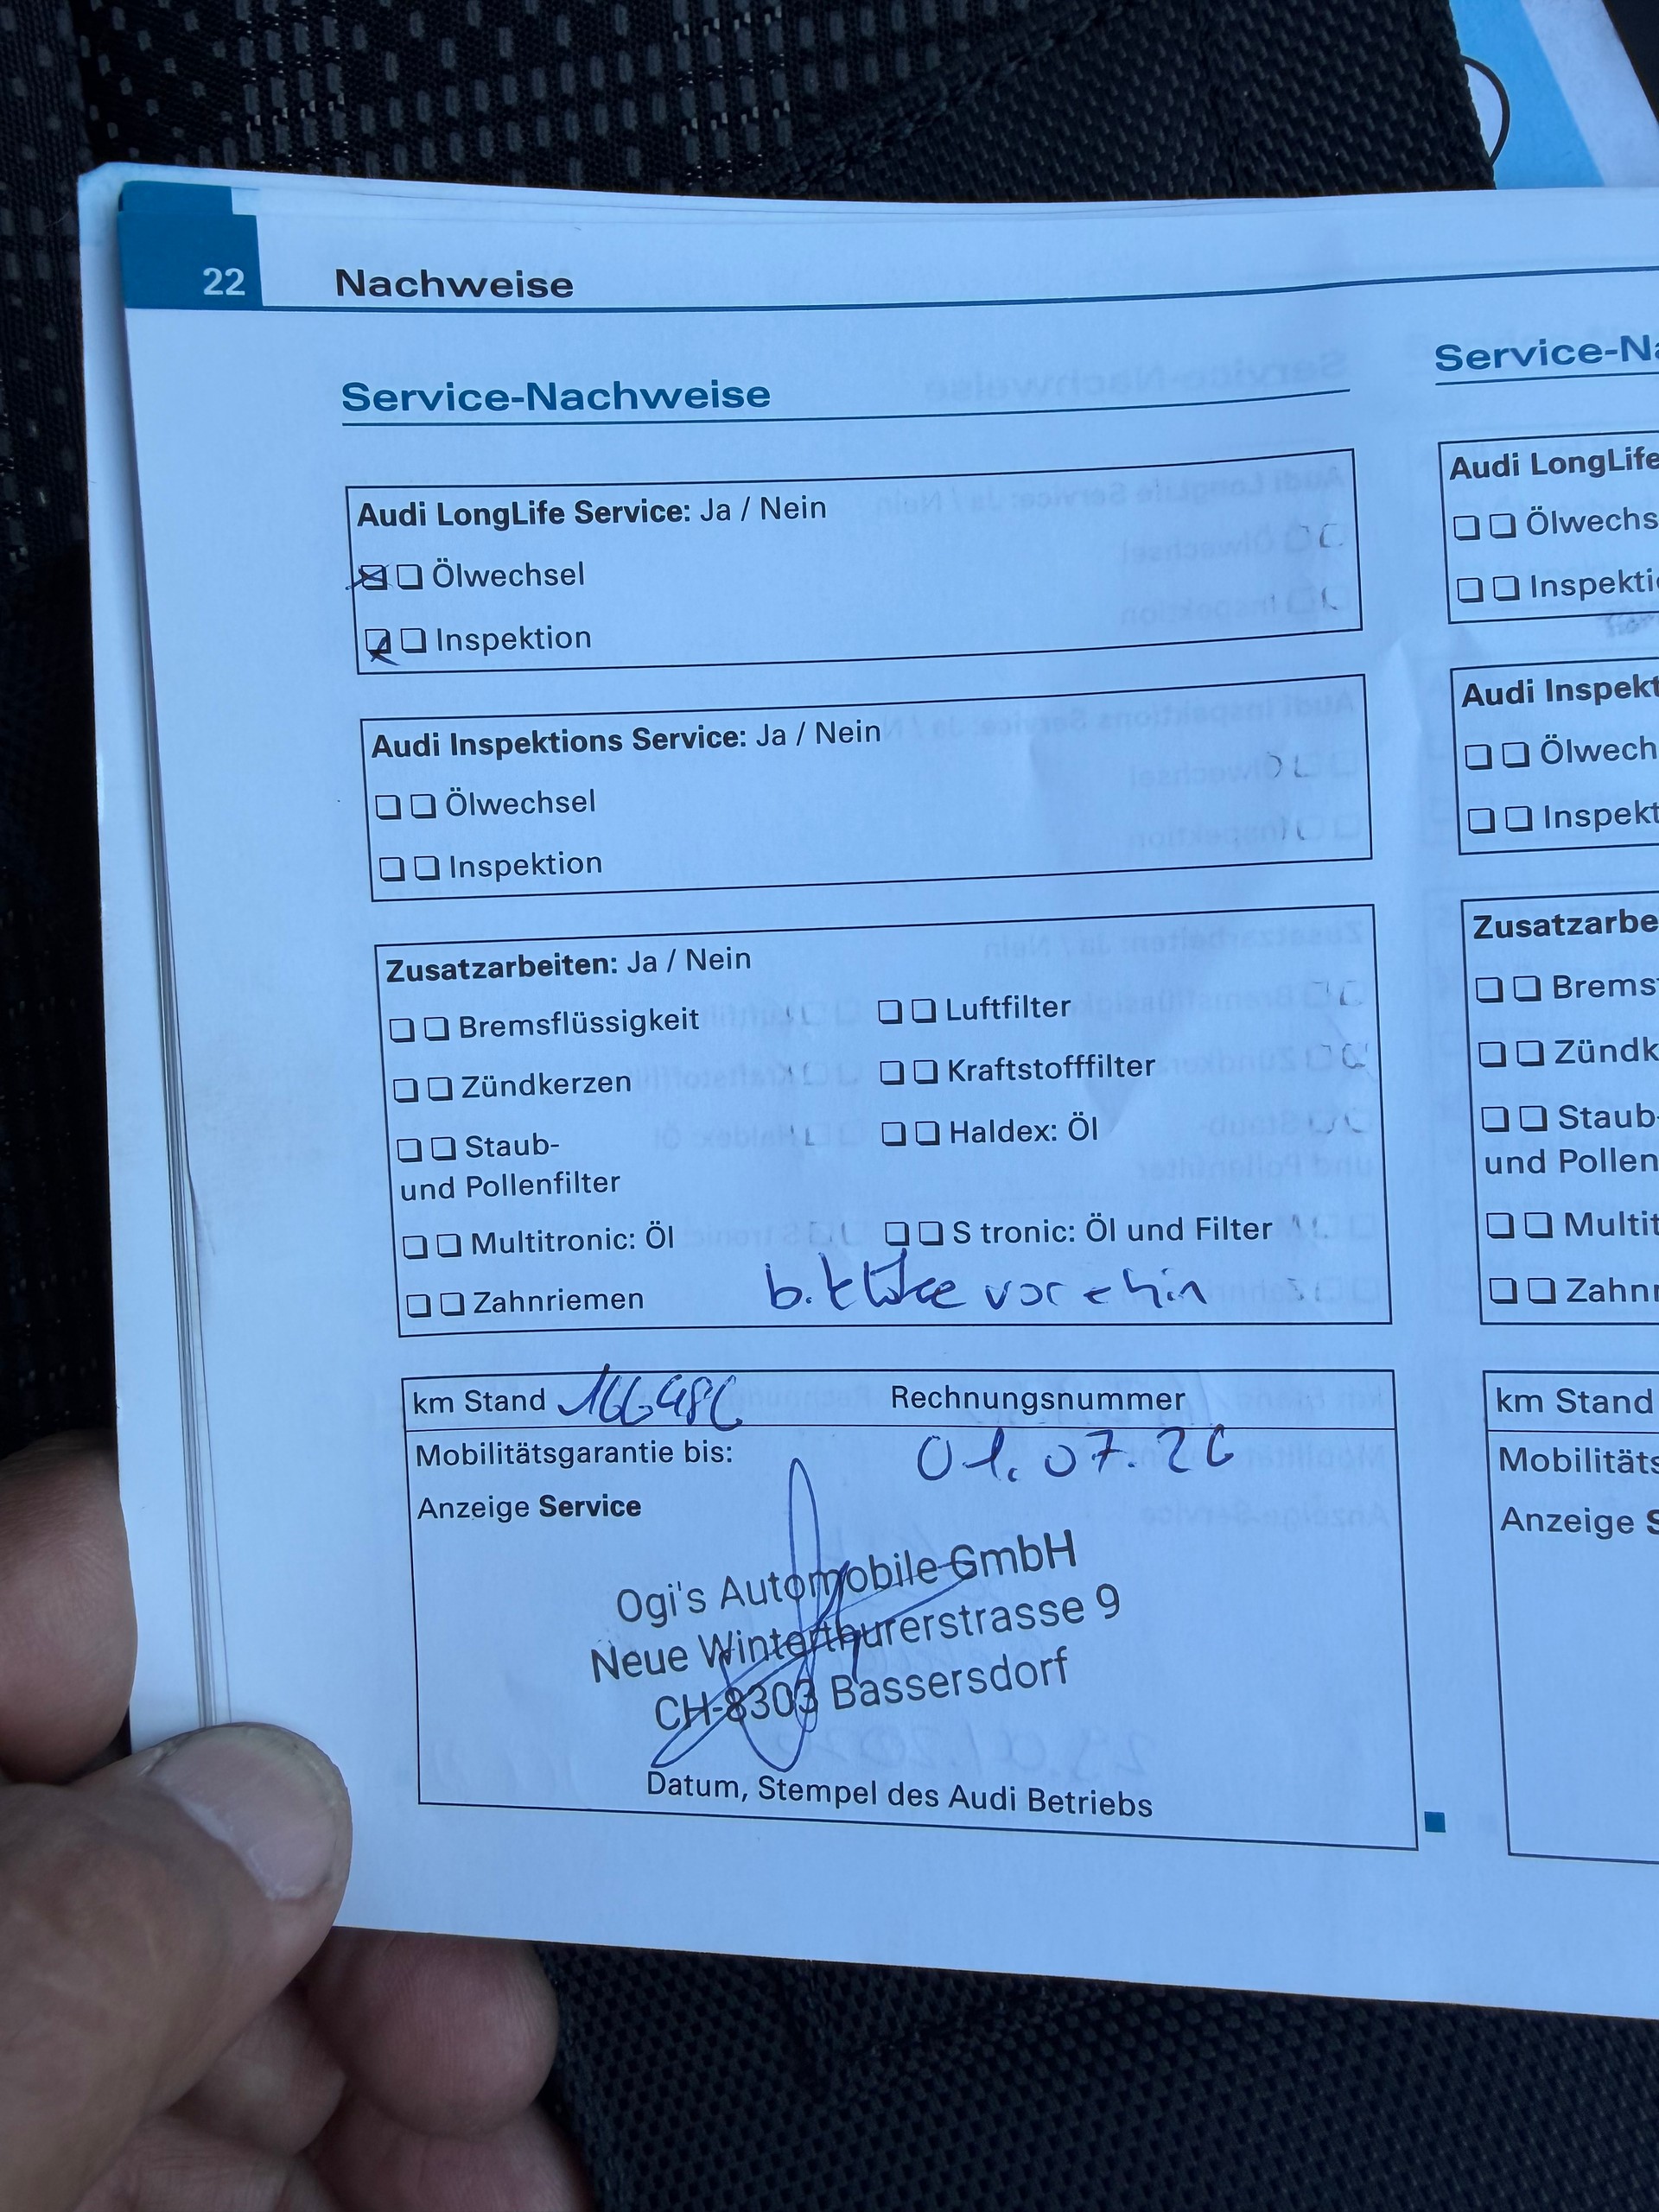 22 Nachweise
Service-Nachweise
Audi LongLife Service: Ja / Nein
Ölwechsel
Inspektion
Audi Inspektions Service: Ja / Nein
Ölwechsel
Inspektion
Zusatzarbeiten: Ja / Nein
Bremsflüssigkeit
Luftfilter
Zündkerzen
Kraftstofffilter
Staub-
und Pollenfilter
Haldex: Öl
Multitronic: Öl
S tronic: Öl und Filter
Zahnriemen
vor + hin
km Stand 166486
Rechnungsnummer
Mobilitätsgarantie bis:
01.07.26
Anzeige Service
Ogi's Automobile GmbH
Neue Winterthurerstrasse 9
CH-8303 Bassersdorf
Datum, Stempel des Audi Betriebs
Service-Na
Audi LongLife
Ölwechs
Inspektio
Audi Inspekt
Ölwech
Inspekt
Zusatzarbe
Bremsf
Zündk
Staub-
und Pollen
Multit
Zahnr
km Stand
Mobilitäts
Anzeige S